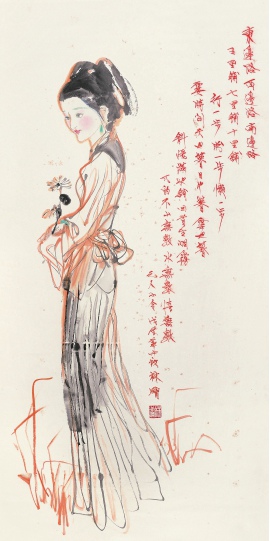 東邊路西邊路南邊路
五里鋪七里鋪十里鋪
行一步盼一步懶一步
霎時間天也暮日也暮雲也暮
斜陽滿地鋪回首生煙霧
兀的不山無數水無數情無數
元人小令戊辰林墉